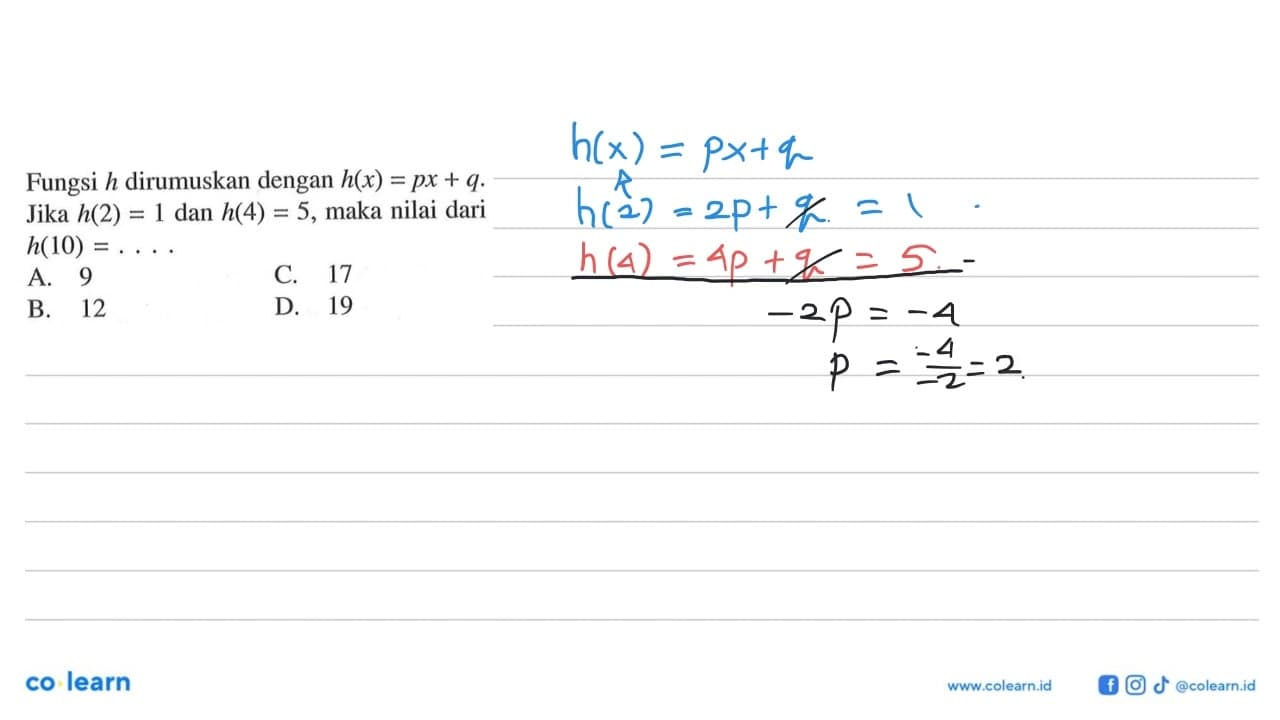 Fungsi h dirumuskan dengan h(x) = px + q.
Jika h(2) = 1 dan h(4) = 5, maka nilai dari
h(10) = . . . .
A. 9 C. 17
B. 12 D. 19
h(x) = px + q
h(2) = 2p + q = 1
h(4) = 4p + q = 5 -
-2p = -4
p = -4/-2 = 2
co learn
www.colearn.id @colearn.id